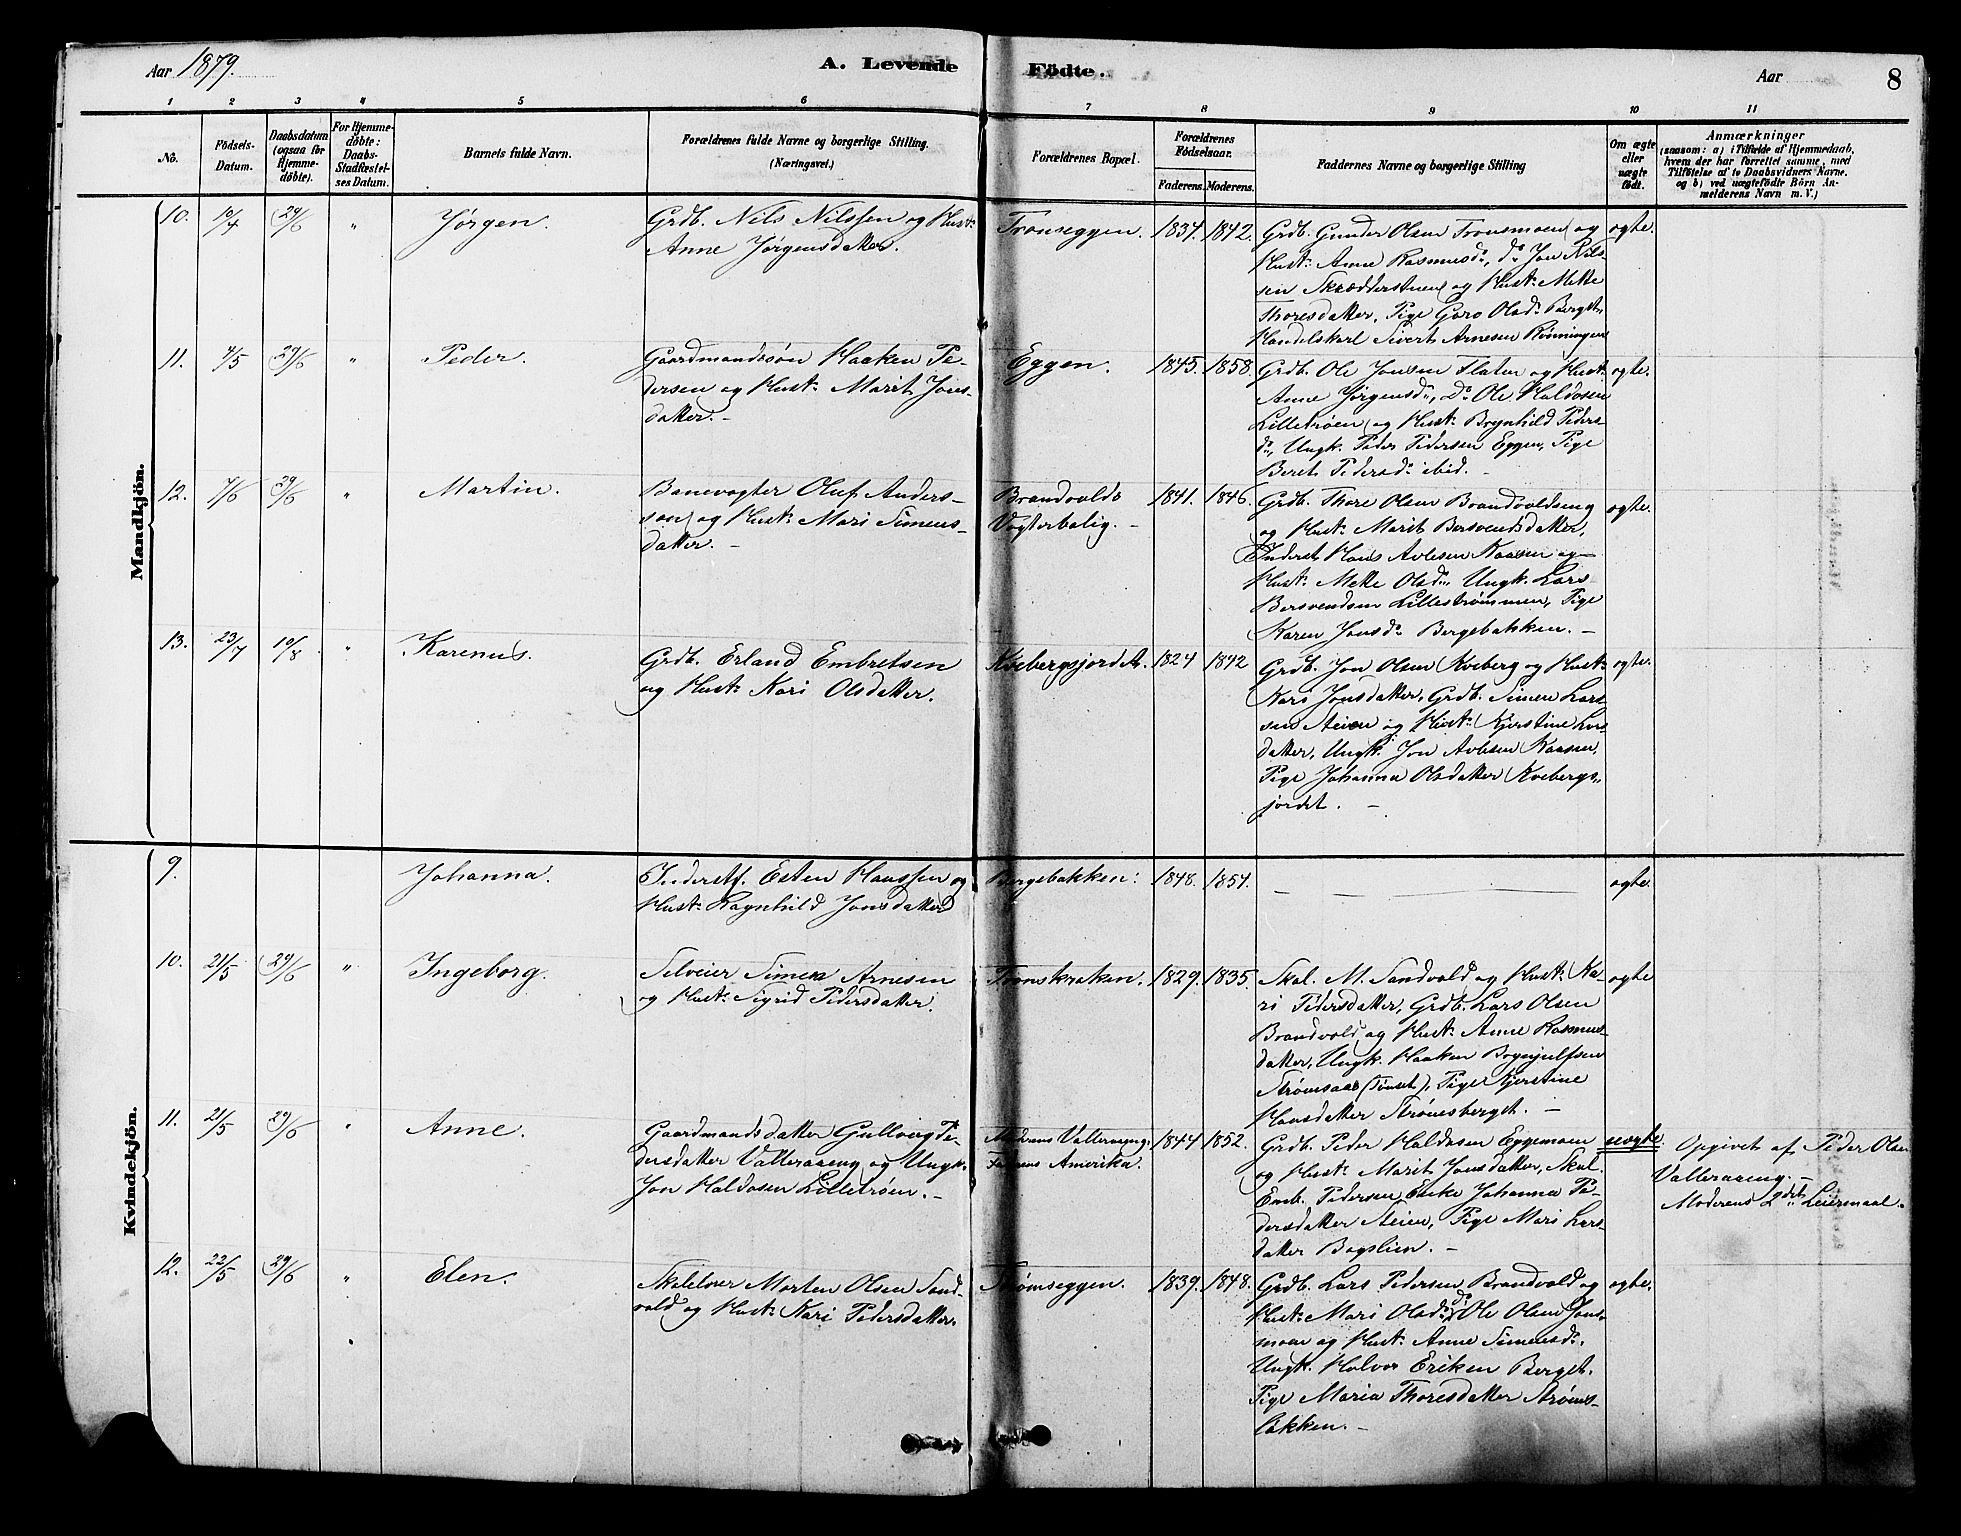 Aar 1879.
A. Levende Födte.
Aar
8
1 2 3 4 5 6 7 8 9 10 11
No.
Födsels-
Datum.
Daabsdatum
(ogsaa for
Hjemme-
döbte).
For Hjemme-
døbte:
Daabs-
Stadfæstel-
ses Datum.
Barnets fulde Navn.
Forældrenes fulde Navne og borgerlige Stilling.
(Næringsvei.)
Forældrenes Bopæl.
Forældrenes
Födselsaar.
Faderens. Moderens.
Faddernes Navne og borgerlige Stilling
Om ægte
eller
uægte
født.
Anmærkninger
(saasom: a) i Tilfælde af Hjemmedaab,
hvem der har forrettet samme, med
Tilföielse af to Daabsvidners Navne.
og b) ved uægtefödte Börn An-
melderens Navn m.V.)
Mandkjön.
10. 10/4 29/6 " Jørgen.
Grdb. Nils Nilssen og Hust:
Anne Jørgensdatter.
Tronseggen. 1834. 1842.
Grdb. Gunder Olsen Tronsmoen og
Hust: Anne Rasmusd:, do Jon Nils-
sen Skrædderstuen og Hust: Mette
Thoresdatter, Pige Goro Olsd: Berget,
Handelskarl Sivert Arnesen Rønningen
ægte.
11. 4/5 29/6 " Peder.
Gaardmandssøn Haaken Pe-
dersen og Hust: Marit Jons-
datter. -
Eggen. 1845. 1858.
Grdb. Ole Jonsen Flaten og Hust:
Anne Jørgensd:, Do Ole Haldosen
Lilletrøen og Hust: Brynhild Peders-
d:, Ungk. Peder Pedersen Eggen, Pige
Beret Pedersd: ibid. -
ægte.
12. 7/6 29/6 " Martin.
Banevogter Oluf Anders-
son og Hust: Mari Simens-
datter. -
Brandvolds
Vogterbolig. -
1841. 1846.
Grdb. Thore Olsen Brandvoldseng
og Hust: Marit Bersvendsdatter,
Inderst Hans Avlesen Kaasen og
Hust: Mette Olsd:, Ungk. Lars
Bersvendsen Lillestrømmen, Pige
Karen Jonsd: Bergebakken. -
ægte.
13. 23/7 10/8 " Karenus.
Grdb. Erland Embretsen
og Hust: Kari Olsdatter.
Kvebergsjordet. 1824 1842
Grdb. Jon Olsen Kveberg og Hust:
Kari Jonsdatter, Grdb. Simen Lars-
sen Steien og Hust: Kjerstine Lars-
datter, Ungk. Jon Avlesen Kaasen,
Pige Johanna Olsdatter Kvebergs-
jordet. -
ægte.
Kvindekjön.
9. Johanna.
Inderstf. Esten Hanssen og
Hust: Ragnhild Jonsdatter
Bergebakken: 1848. 1854. ægte.
10. 21/5 29/6 " Ingeborg.
Selveier Simen Arnesen
og Hust: Sigrid Pedersdatter.
Tronskraken. 1829. 1835.
Skol. M. Sandvold og Hust: Ka-
ri Pedersdatter, Grdb. Lars Olsen
Brandvold og Hust: Anne Rasmus-
datter, Ungk. Haaken Brynjulfsen
Strømsaas (Tønset), Pige Kjerstine
Hansdatter Strømsberget. -
ægte
11. 21/5 29/6 " Anne.
Gaardmandsdatter Gullovg Pe-
dersdatter Valleraaeng og Ungk.
Jon Haldosen Lilletrøen. -
Moderens Valleraaeng,
Faderens Amerika.
1844 1852.
Grdb. Peder Haldosen Eggemoen
og Hust: Marit Jonsdatter, Skol.
Emb. Pedersen, Enke Johanna Pe-
dersdatter Steien, Pige Mari Lars-
datter Bagslien. -
uægte. Opgivet af Peder Olsen
Valleraaeng. -
Moderens 2det Leiermaal.
12. 22/5 29/6 " Elen.
Skolelærer Morten Olsen Sand-
vold og Hust: Kari Pedersdatter.
Strømseggen. 1839. 1848.
Grdb. Lars Pedersen Brandvold og
Hust: Mari Olsd: do Ole Olsen Jons-
moen og Hust: Anne Simensd:,
Ungk. Halvor Eriksen Berget.
Pige Maria Thoresdatter Strøms-
bakken. -
ægte.